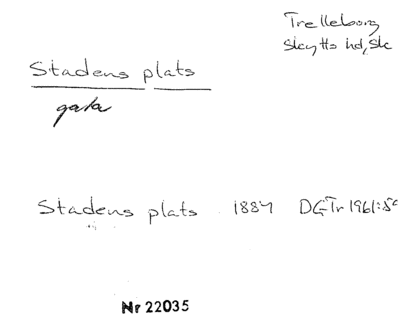 Trelleborg
Skytts hd, Sk
Stadens plats
gata
Stadens plats 1887 DGTr 1961:5
Nr 22035